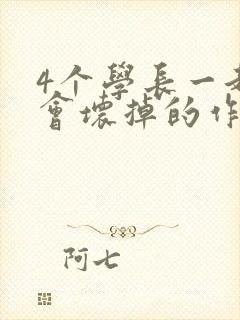 4个學長一
會壞掉的作
阿七